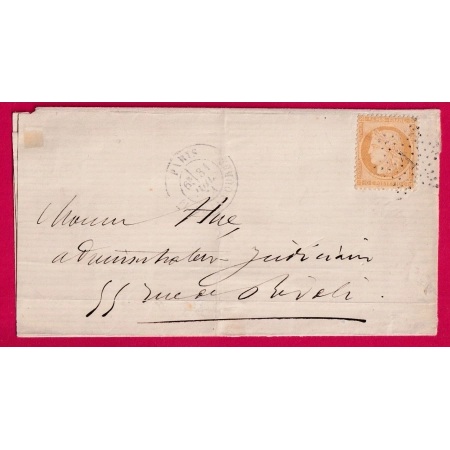 PARIS
31
Monsieur Hue,
administrateur judiciaire
55 rue de Rivoli.